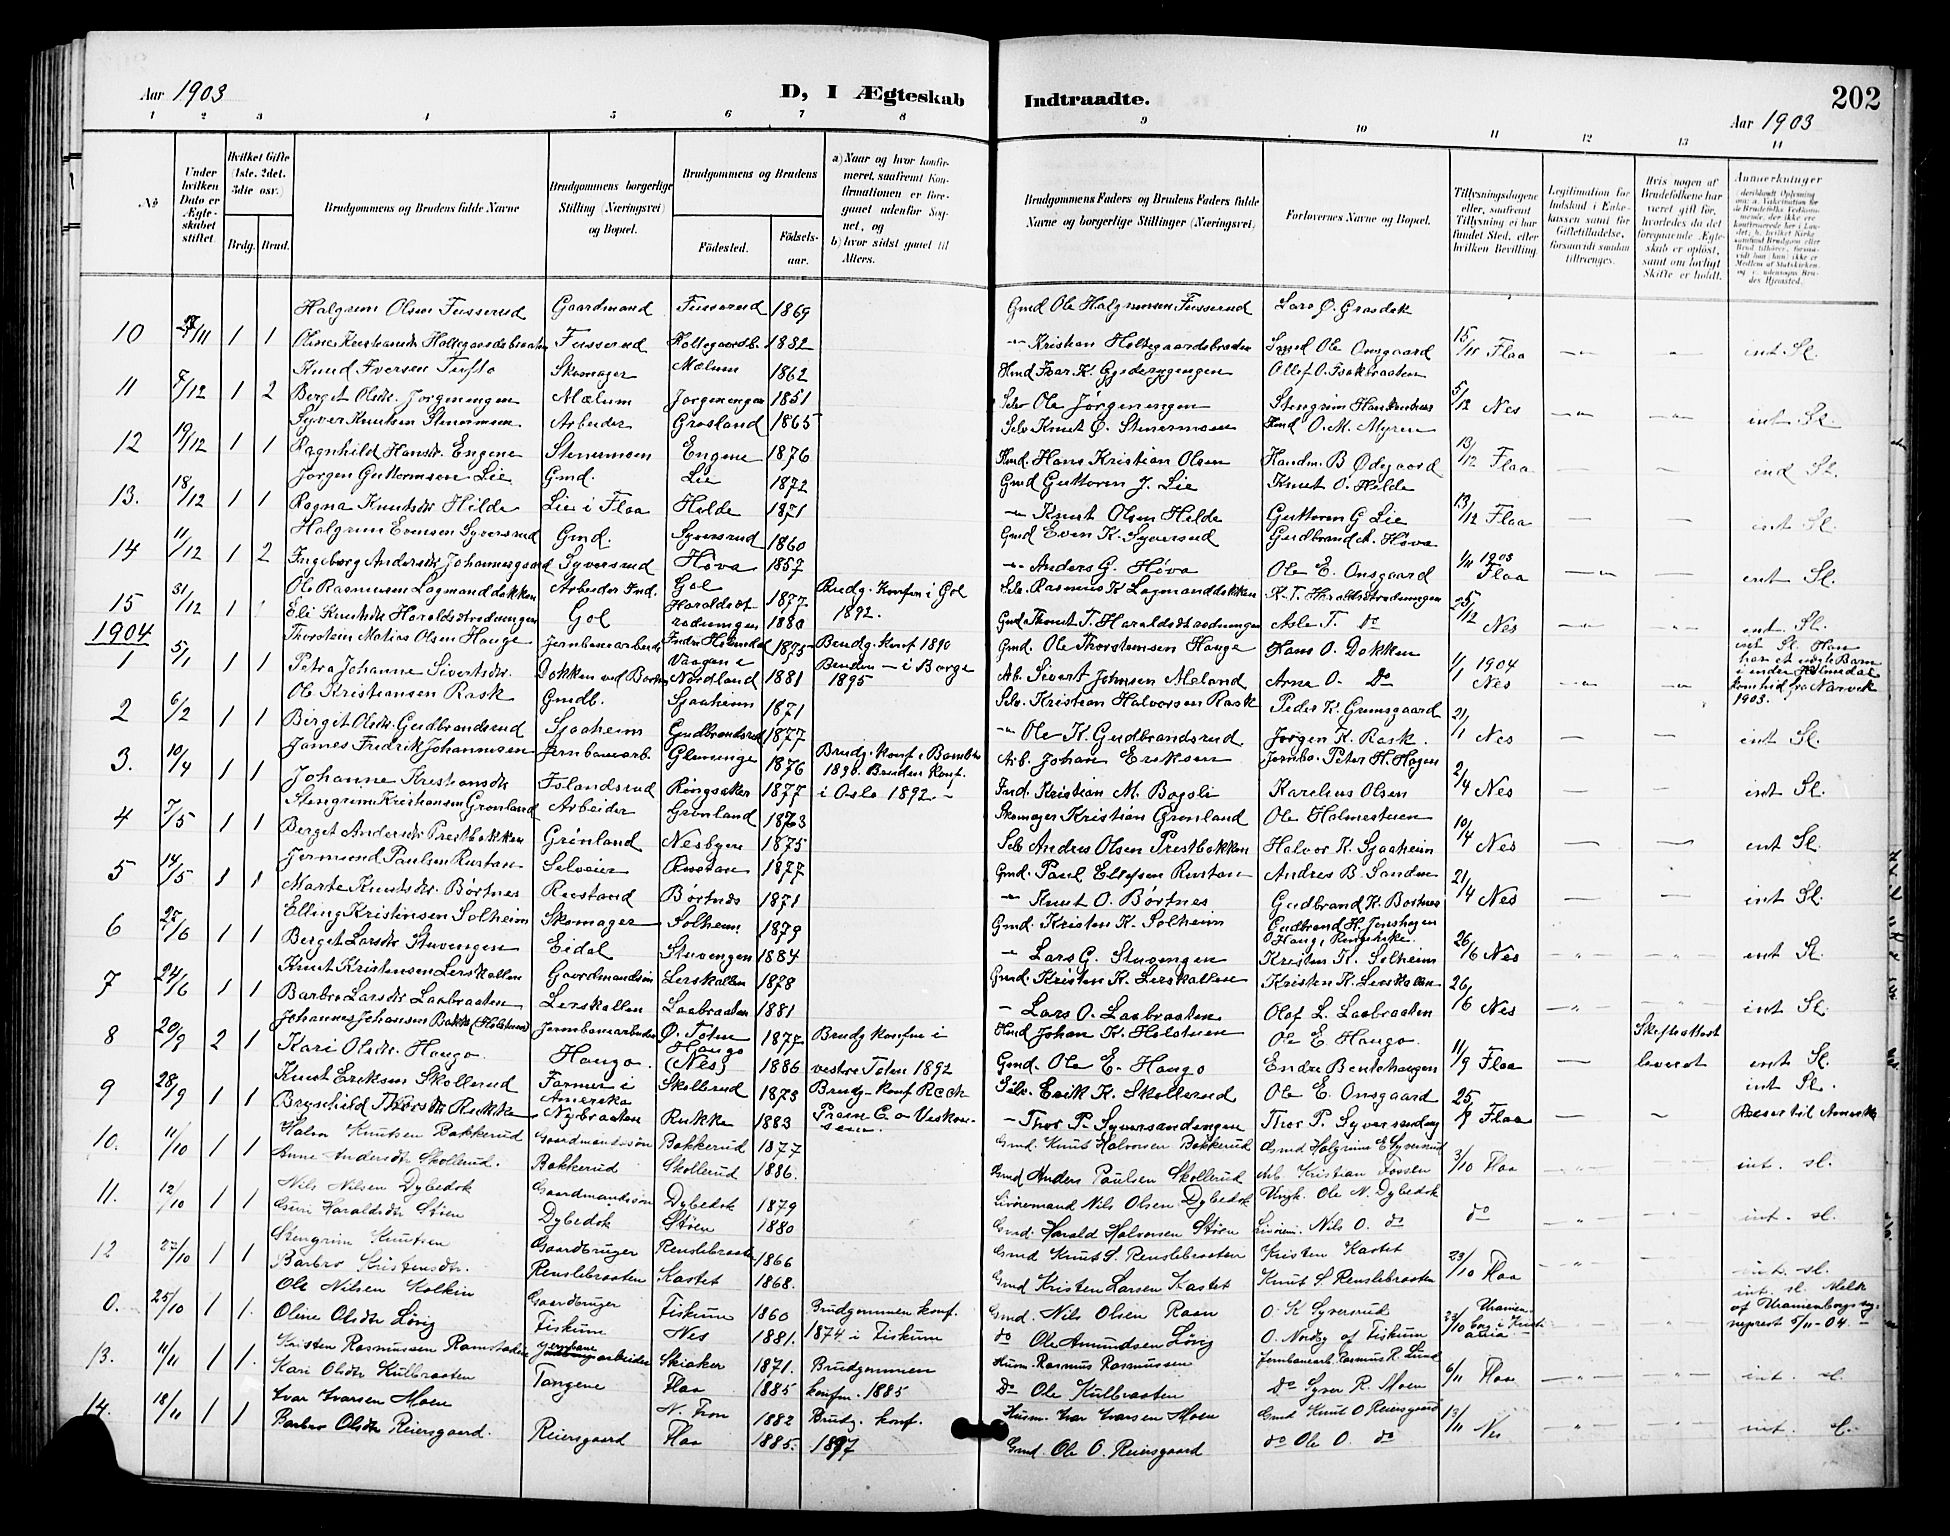 Aar 1903
D, I Ægteskab
Indtraadte.
202
Aar 1903
1 2 3 4 5 6 7 8 9 10 11 12 13 14
No
Under hvilken Dato er Ægteskabet stiftet
Hvilket Gifte (1ste, 2det, 3die osv.)
Brdg. Brud.
Brudgommens og Brudens fulde Navne
Brudgommens borgerlige Stilling (Næringsvei) og Bopæl.
Brudgommens og Brudens
Födested.
Födsels-aar.
a) Naar og hvor konfirmeret, saafremt Konfirmationen er foregaaet udenför Sognet, og
b) hvor sidst gaaet til Alters.
Brudgommens Faders og Brudens Faders fulde Navne og borgerlige Stillinger (Næringsvei)
Forlovernes Navne og Bopæl.
Tillysningsdagene eller, saafremt Tillysning ei har fundet Sted, efter hvilken Bevilling.
Legitimation for Indskud i Enkekassen samt for Giftetilladelse, forsaavidt saadan tiltrænges.
Hvis nogen af Brudefolkene har været gift för, hvorledes da det foregaaende Ægteskab er oplöst, samt om lovligt Skifte er holdt.
Anmærkninger
Halgrim Olsen Fusserud Gaardmand Fusserud 1869 Gmd Ole Halgrimsen Fusserud Lars O. Grasdok
10 27/11 1 1 Oline Kristiansdtr Holtegaardsbraaten Fusserud Holtegaardsb. 1882 -"- Kristian Holtegaardsbraaten Smed Ole Onsgaard 15/11 Flaa -"- " int Sl.
Knud Iversen Tufto Skomager Mælum 1862 Hmd Ivar K. Ollef O. Bakbraaten
11 7/12 1 2 Berget Olsdr. Jorgenengen Mælum Jorgenengen 1851 Selv Ole Jørgenengen 5/12 Nes -"- -"- int Sl.
Syver Knutsen Stenermoen Arbeider Grosland 1865 Selv Knut O. Stenermoen Hmd O. M. Myren
12 19/12 1 1 Ragnhild Hansdr. Engene Stenermoen Engene 1876 Hmd. Hans Kristian Olsen Handm. B Ødegaard 13/12 Flaa — — ind Sl.
Jorgen Guttormsen Lie Gmd. Lie 1872 Gmd Guttorm J. Lie Knut O. Hilde
13. 18/12 1 1 Ragna Knutsdr Hilde Lie i Flaa Hilde 1871 -"- Knut Olsen Hilde Guttorm G Lie 13/12 Flaa — — int Sl.
Halgrim Evensen Syversrud Gmd. Syversrud 1860 Gmd Even K. Syversrud Gudbrand A. Hova
14 11/12 1 2 Ingeborg Andersdr Johannesgaard Syversrud Hova 1857 -"- Anders G. Høva Ole E. Onsgaard 1/11 1903 Flaa -"- — int Sl.
Ole Rasmussen Lagmanddokken Arbeider Ind. Gol 1877 Brudg. Konfm i Gol Selv. Rasmus K Lagmanddokken K. T. Haraldstrodningen
15 31/12 1 Eli Knutsdr Haraldstrodningen Gol Haraldstrodningen 1880 1892. Gmd Knut T. Haraldstrodningen Asle T. do 25/12 Nes -"- -"- int Sl.
1904
Thorstein Matias Olsen Hauge Jernbanearbeider Indre Holmedal 1875 Brudg. Konf 1890 Gmd. Ole Thorstensen Hauge Hans O. Dokken int Sl. Han har et uægte Barn
1 5/1 1 1 Petra Johanne Sivertsdr. Dokken ved Bortnes Vaagen i Nordland 1881 Bruden — i Borge 1895 Ab. Sivert Johnsen Aleland Arne O. Do 1/1 1904 Nes -"- -"- i indre Holmedal fra Narvik 1903.
Ole Kristiansen Rask Gmdb. Sjaaheim 1871 Selv. Kristian Halvorsen Rask Peder K. Grimsgaard
2 6/2 1 1 Birgit Olsdr. Gudbrandsrud Sjaaheim Gudbrandsrud 1877 -"- Ole K. Gudbrandsrud Jørgen K. Rask. 21/1 Nes int Sl.
James Fredrik Johannesen Jernbanearb. Glemminge 1876 Brudg. konf i Bamble Arb. Johan Eriksen Jernba. Peter H. Hagen
3. 10/4 1 1 Johanne Kristiansdr Islandsrud Ringsaker 1877 1890. Bruden Konf. i Oslo 1892. — Ind. Kristian M. Bogsli Karelius Olsen 2/4 Nes — — int Sl.
Stengrim Kristiansen Gronland Arbeider Gronland 1873 Skomager Kristian Gronland Ole Holmestuen
4 7/5 1 1 Berget Andersdr Prestbakken Grönland Nesbyen 1875 Selv Andres Olsen Prestbakken Halvor K. Sjaaheim 10/4 Nes — — int Sl.
Jermund Paulsen Rustan Selveier Rustan 1877 Gmd. Paul Ellefsen Rustan Andres B. Sanden
5 14/5 1 1 Marte Knutsdr. Børtnes Rustand Børtnes 1871 -"- Knut O. Børtnes Gudbrand K. Bortnes 21/4 Nes — — int Sl.
Elling Kristensen Solheim Skomager Solheim 1879 Gmd. Kristen K. Solheim Gudbrand H. Jenshagen
6 27/6 1 1 Berget Larsdr Stuvengen Eidal Stuvengen 1884 — Lars G. Stuvengen Kristen K. Solheim 26/6 Nes -"- -"- int Sl.
Knut Kristensen Lerskallen Gaardmandssøn Lerskallen 1878 Gmd. Kristen K. Lerskallen Kristen K. Lerskallen
7 24/6 1 1 Barbro Larsdr Laabraaten Lerskallen Laabraaten 1881 — Lars O. Laabraaten Olaf L. Laabraaten 26/6 Nes -"- -"- int Sl.
Johannes Johansen Bakke (Holstuen) Jernbanearbeider Ø. Toten 1875 Brudg Konfm i Hmd Johan K. Holstuen Ole E. Haugo. Skifteattest
8 20/9 2 1 Kari Olsdr. Haugo. Haugo. Haugo (Nes) 1886 vestre Toten 1892 Gmd. Ole E. Haugo Endre Bentehaugen 11/9 Flaa — leveret int Sl.
Knut Eriksen Skollerud Farmer i Amerika Skollerud 1873 Brudg. konf Rock Selv. Erik K. Skollerud Ole E. Onsgaard int Sl.
9 28/9 1 1 Brynhild Thorsdr Rukke Nybraaten Rukke 1883 Prairie C. o Viskonsin. — Thor P. Syversandengen Thor P. Syversandeng 25/9 Flaa — " Reiser til Amerika
Halvor Knutsen Bakkerud Gaardmandssøn Bakkerud 1877 Gmd. Knut Halvorsen Bakkerud Gmd Halgrim E Syversrud
10. 11/10 1 1 Anne Andersdtr Skollerud. Bakkerud Skollerud 1886. Gmd Anders Paulsen Skollerud Arb. Kristian Fossen 3/10 Flaa -"- -"- int. sl.
Nils Nilsen Dybedok Gaardmandssøn Dybedok 1879 Livöremand Nils Olsen Dybedok Ungk. Ole N. Dybedok
11. 12/10 1 1 Guri Haraldsdtr Stöen Dybedok Stöen 1880 Gmd. Harald Halvorsen Störn Livörm. Nils O. do do -"- -"- int. sl.
Stengrim Knutsen Gaardbruger Renslebraaten 1866 Gmd Knut S. Renslebraaten Kristen Kastet
12 27/10 1 1 Barbro Kristensdtr. Renslebraaten Kastet 1868. Gmd Kristen Larsen Kastet Knut S. Renslebraaten 23/10 Flaa -"- — int. sl.
Ole Nilsen Kolkin Gaardbruger Fiskum 1860 Brudgommen konf. Gmd. Nils Olsen Raan O. K Syversrud int. sl. Meldt
0. 25/10 1 1. Oline Olsdtr Lövig Fiskum Nes 1881. 1874 i Fiskum do Ole Amundsen Lövig O. Nordby af Fiskum 23/10 Uranienborg i Kristiania — af Uranienborgs sogneprest 5/11-04. —
Kristen Rasmussen Ramstaken Jernbanearbeider Skiaker 1871. Brudgommen Husm. Rasmus Rasmussen Jernbanearb. Rasmus R. Lund
13. 11/11 1 1. Kari Olsdtr Kulbraaten Tangene Flaa 1885 konfm. 1885 Do Ole Kulbraaten Do Syver R. Moen 6/11 Flaa -"- -"- int. sl.
Ivar Ivarsen Moen N. Fron 1882 Brudg. konf. Husm. Ivar Ivarsen Moen Gmd Knut O Reiersgaard
14. 18/11 1 1 Barbro Olsdtr Reiersgaard. Reiersgaard Flaa 1885. 1897 Gmd. Ole O. Reiersgaard do Ole O. do 13/11 Nes " " int. sl.